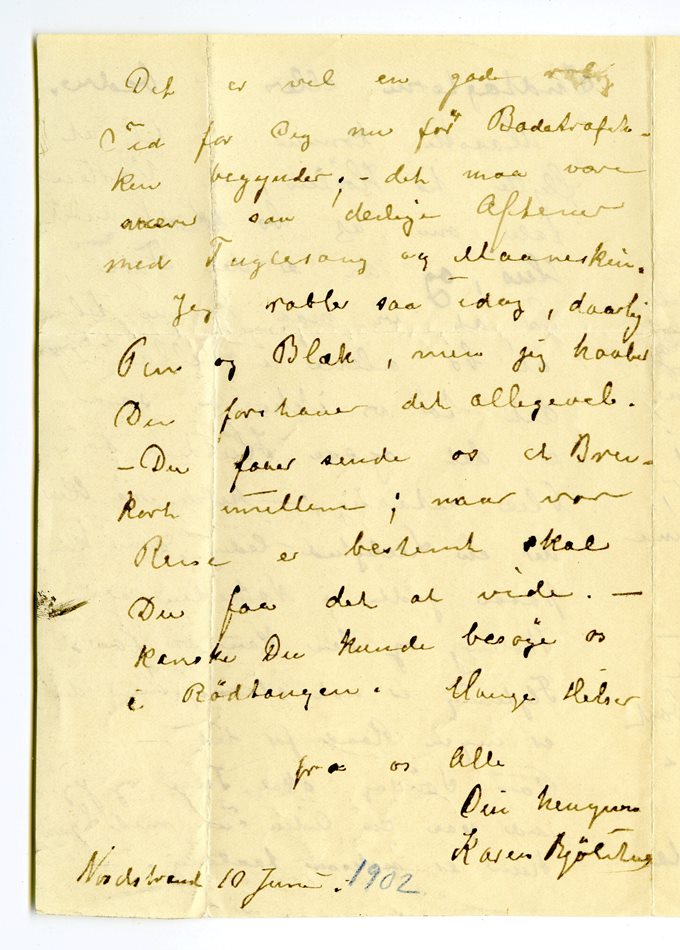 Det er vel en gode rolig
Tid for Deg nu før Badetrafik-
ken begynder; - det maa være
svært saa deilige Aftener
med Fuglesang og Maaneskin.
Jeg rabler saa idag, daarlig
Pen og Blæk, men jeg haaber
Du forstaaer det allegevel.
- Du faaer sende os et Brev-
kort imellem; naar vor
Reise er bestemt skal
Du faa det at vide. -
kanske Du kunde besøge os
i Rødtangen. Mange Hilser
fra os Alle
Din hengivne
Karen
Nordstrand 10 Juni. 1902